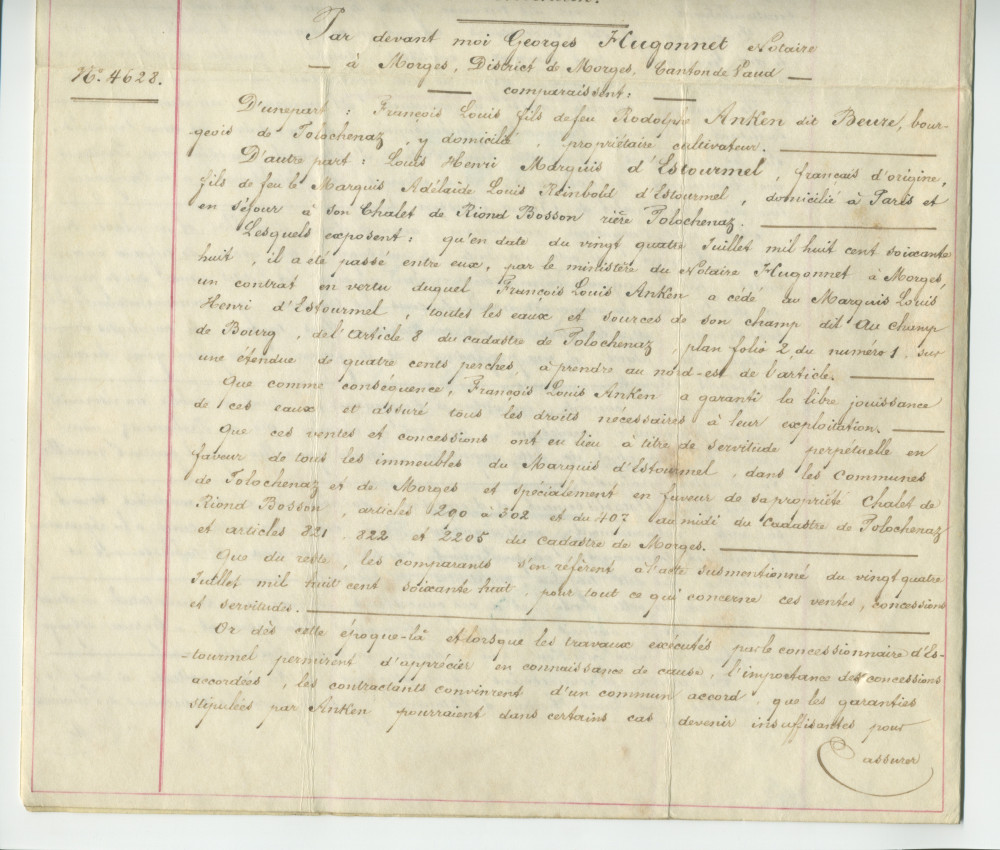 Par devant moi Georges Hugonnet Notaire
— à Morges, District de Morges, Canton de Vaud —
No. 4628.
— comparaissent: —
D'une part : François Louis fils de feu Rodolphe Anken dit Beuze, bour-
-geois de Tolochenaz, y domicilié, propriétaire cultivateur. —
D'autre part : Louis Henri Marquis d'Estourmel, français d'origine,
fils de feu le Marquis Adélaide Louis Reinbold d'Estourmel, domicilié à Paris et
en séjour à son Chalet de Riond Bosson rière Tolochenaz. —
Lesquels exposent : qu'en date du vingt quatre Juillet mil huit cent soixante
huit, il a été passé entre eux, par le ministère du Notaire Hugonnet à Morges,
un contrat en vertu duquel François Louis Anken a cédé au Marquis Louis
Henri d'Estourmel, toutes les eaux et sources de son champ dit Au Champ
de Bourg, de l'article 8 du cadastre de Tolochenaz, plan folio 2, du numéro 1. sur
une étendue de quatre cents perches, à prendre au nord-est de l'article. —
Que comme conséquence, François Louis Anken a garanti la libre jouissance
de ces eaux et assuré tous les droits nécessaires à leur exploitation. —
Que ces ventes et concessions ont eu lieu à titre de servitude perpétuelle en
faveur de tous les immeubles du Marquis d'Estourmel, dans les Communes
de Tolochenaz et de Morges et spécialement en faveur de sa propriété Chalet de
Riond Bosson, articles 290 à 302 et du 407 au midi du Cadastre de Tolochenaz
et articles 821, 822 et 2205 du cadastre de Morges. —
Que du reste, les comparants s'en réfèrent à l'acte susmentionné du vingt quatre
Juillet mil huit cent soixante huit, pour tout ce qui concerne ces ventes, concessions
et servitudes. —
Or dès cette époque-là et lorsque les travaux exécutés par le concessionnaire d'Es-
-tourmel permirent d'apprécier en connaissance de cause, l'importance des concessions
accordées, les contractants convinrent d'un commun accord, que les garanties
stipulées par Anken pourraient dans certains cas devenir insuffisantes pour
assurer